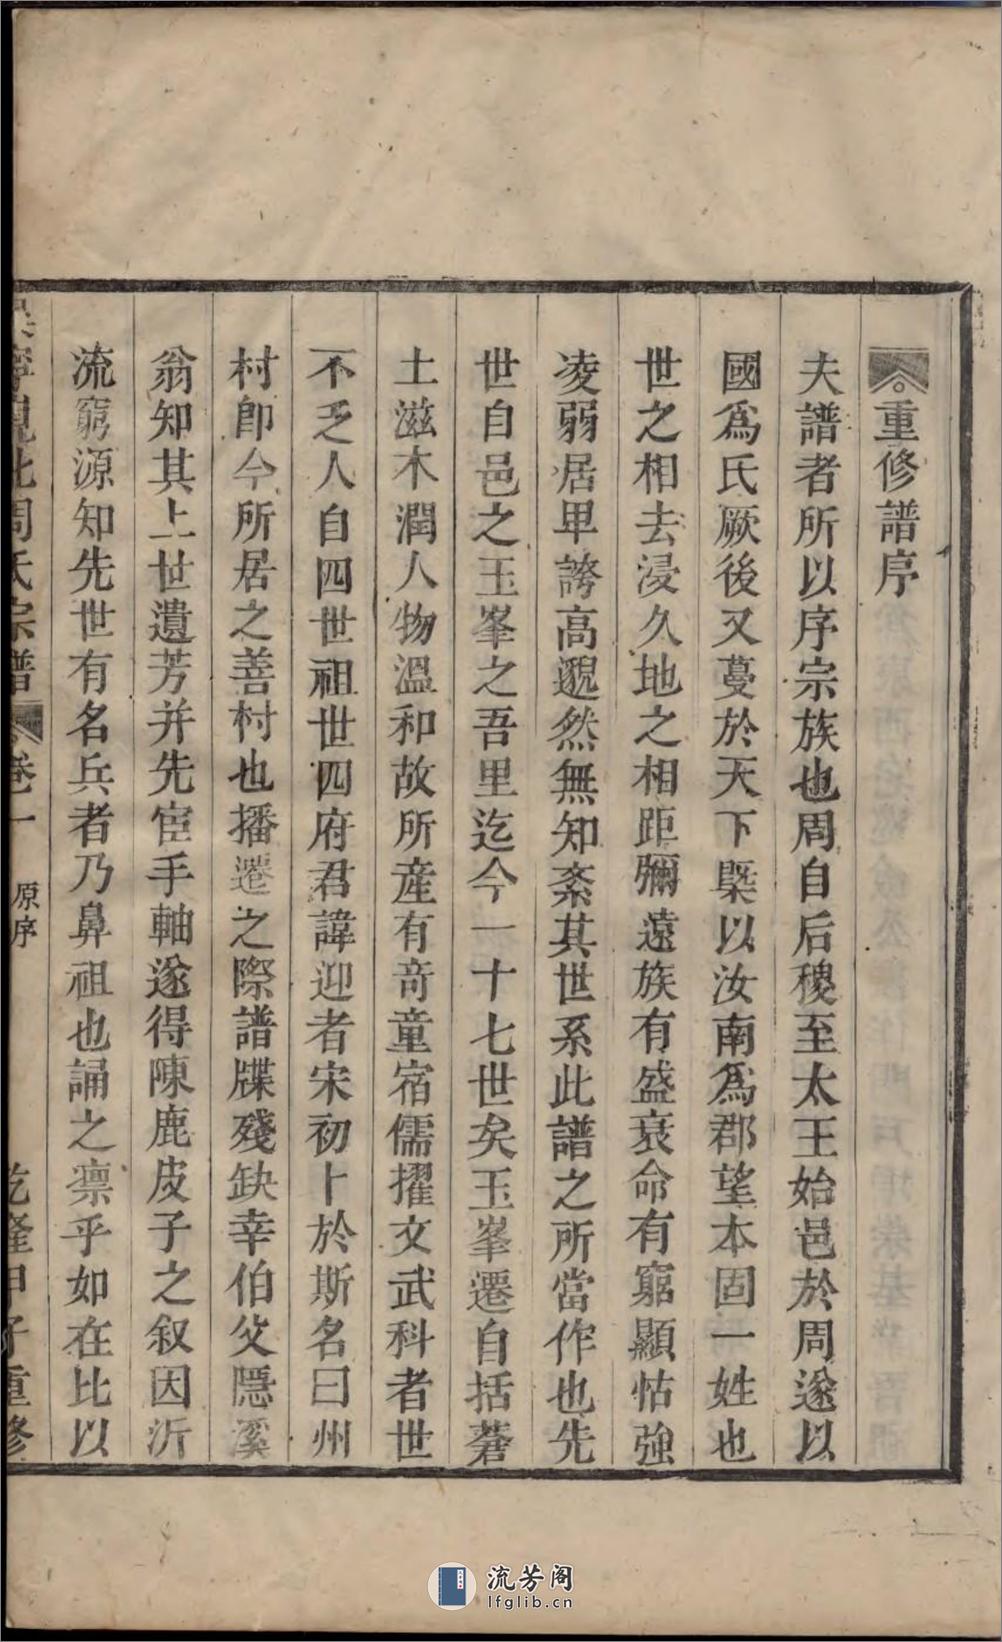 重修譜序
夫譜者所以序宗族也周自后稷至太王始邑於周遂以
國爲氏厥後又蔓於天下槩以汝南爲郡望本固一姓也
世之相去浸久地之相距彌遠族有盛衰命有窮顯怙強
凌弱居卑誇高邈然無知紊其世系此譜之所當作也先
世自邑之玉峯之吾里迄今一十七世矣玉峯遷自括蒼
土滋木潤人物溫和故所產有奇童宿儒擢文武科者世
不乏人自四世祖世四府君諱迎者宋初卜於斯名曰州
村卽今所居之善村也播遷之際譜牒殘缺幸伯父隱溪
翁知其上世遺芳并先宦手軸遂得陳鹿皮子之叙因沂
流窮源知先世有名兵者乃鼻祖也誦之凛乎如在比以
周氏宗譜 卷一 原序 乾隆甲子重修
流芳阁
lfglib.cn